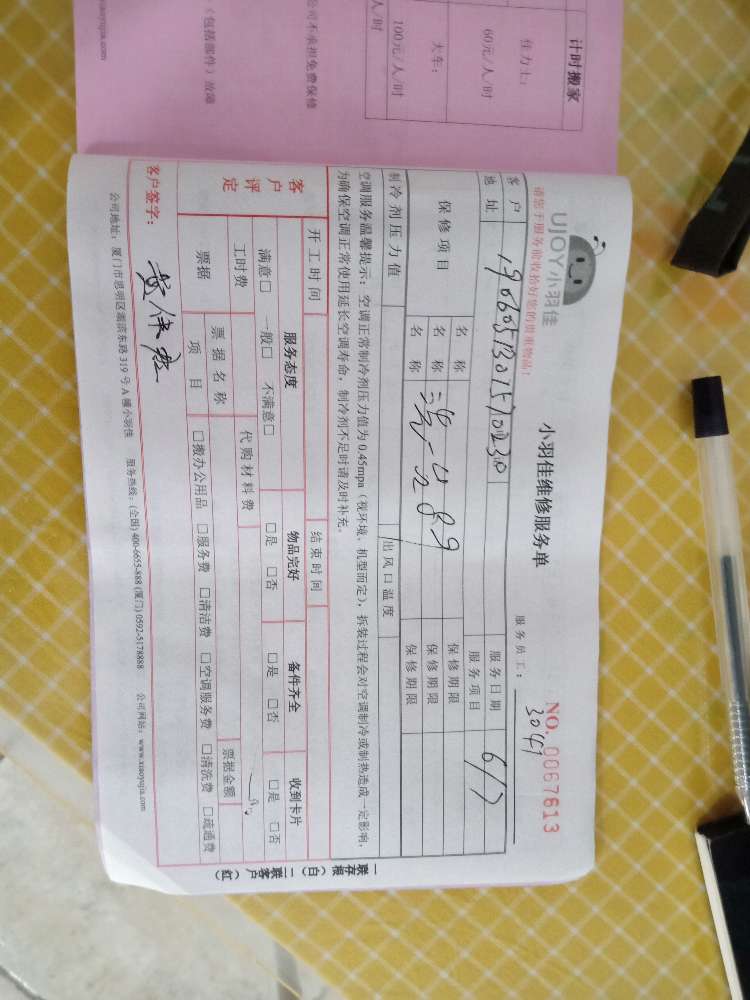 计时搬家
佳力士:
60元/人/时
大车:
100元/人/时
人/时
公司不承担免费保修
(包括部件)故障
UJOY小羽佳
小羽佳维修服务单
NO. 0067613
请您于服务前收拾好您的贵重物品!
服务员工: 3041
客户
地址
1906051307570230
服务日期 6/7
服务项目
保修项目
名称
保修期限
名称
保修期限
名称
保修期限
制冷剂压力值
出风口温度
空调服务温馨提示:空调正常制冷剂压力值为0.45mpa(视环境、机型而定),拆装过程会对空调制冷或制热造成一定影响,
为确保空调正常使用延长空调寿命,制冷剂不足时请及时补充。
开工时间
结束时间
客户评定
服务态度
物品完好
备件齐全
收到卡片
满意□ 一般□ 不满意□
□是 □否
□是 □否
□是 □否
工时费
代购材料费
票据
票据名称
票据金额
项目
□搬办公用品 □服务费 □清洁费 □空调服务费 □清洗费 □疏通费
客户签字:
公司地址:厦门市思明区湖滨东路319号A幢小羽佳 服务热线:(全国)400-6655-888 (厦门)0592-5178888 公司网站:www.xiaoyujia.com
一联存根(白) 二联客户(红)